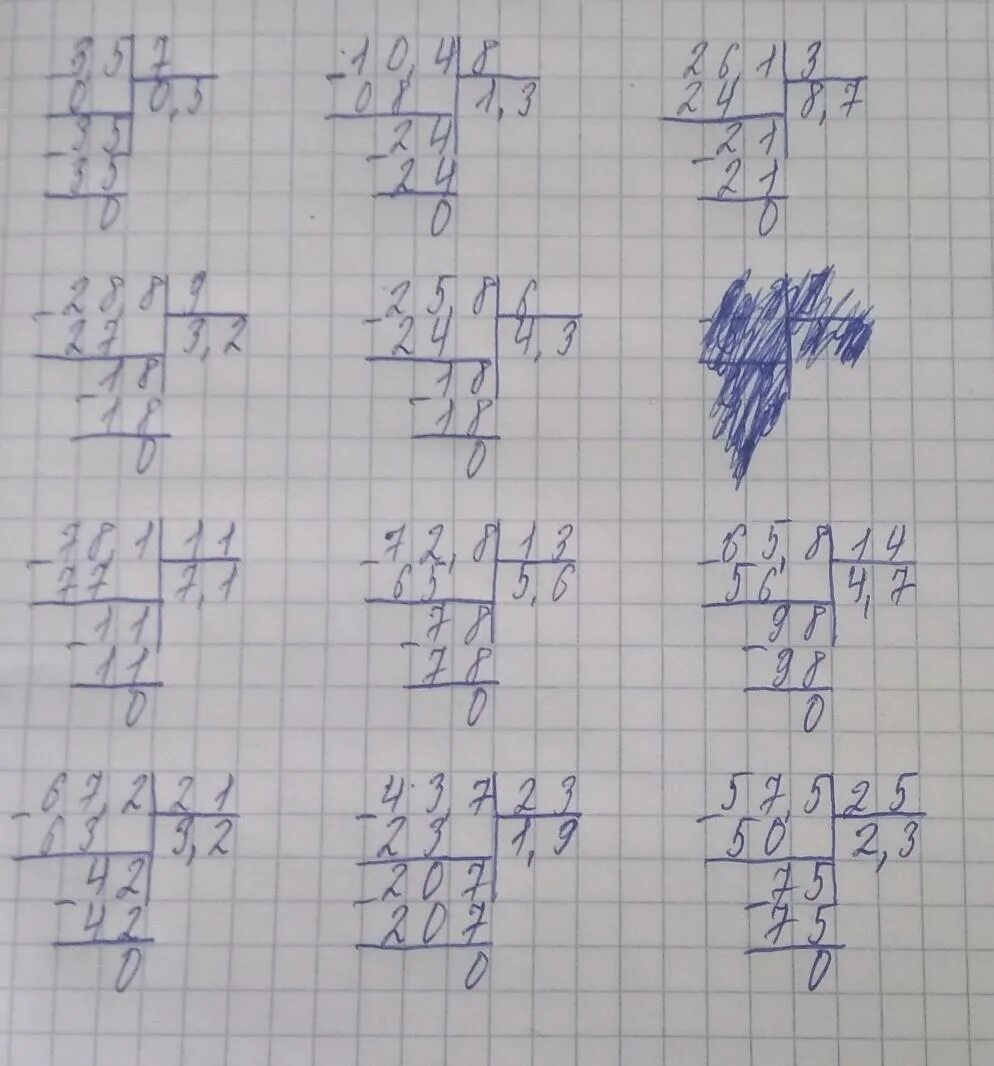 3,5 7
0 0,5
-35
35
0
-10,4 8
08 1,3
-24
24
0
26,1 3
24 8,7
-21
21
0
-28,8 9
27 3,2
-18
18
0
-25,8 6
24 4,3
-18
18
0
-78,1 11
77 7,1
-11
11
0
-72,8 13
65 5,6
-78
78
0
-65,8 14
56 4,7
-98
98
0
-67,2 21
63 3,2
-42
42
0
-43,7 23
23 1,9
-207
207
0
-57,5 25
50 2,3
-75
75
0